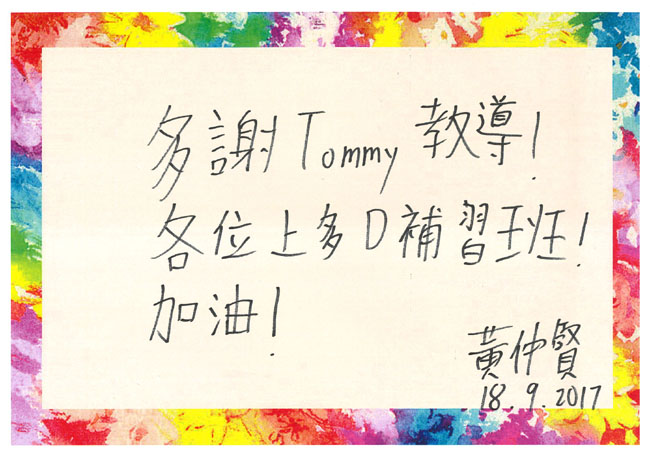 多謝Tommy教導!
各位上多D補習班!
加油!
黃仲賢
18.9.2017